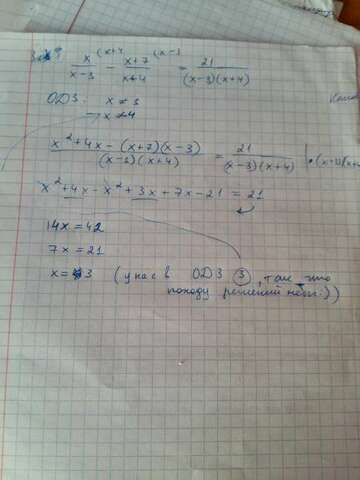 x/(x-3) (x+4 - (x+7)/(x+4) (x-3 = 21/((x-3)(x+4))
ОДЗ: x ≠ 3
x ≠ 4
(x²+4x-(x+7)(x-3))/((x-3)(x+4)) = 21/((x-3)(x+4)) | ·(x-3)(x+
x²+4x-x²+3x+7x-21 = 21
14x = 42
7x = 21
x = 3 (у нас в ОДЗ 3, так что
походу решений нет :))